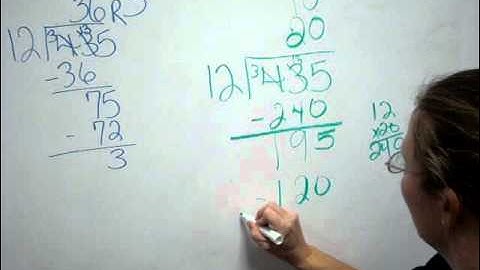 36 R3
12 435
-36
75
- 72
3
10
20
12 435
- 240
195
- 120
12
x20
240